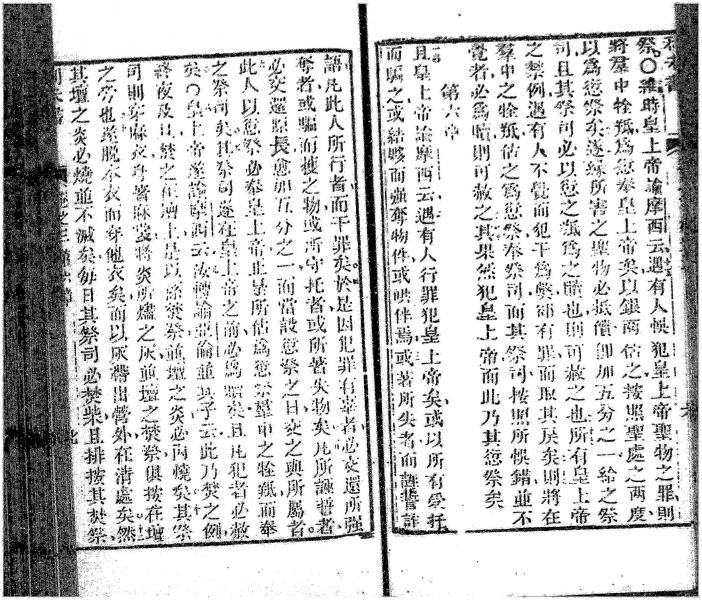 祭○維時皇上帝諭摩西云遇有人悞犯皇上帝聖物之罪則
將羣中牲羝爲愆奉皇上帝矣以銀兩估之按照聖處之两度
以爲愆祭矣遂緣所害之聖物必抵償卽加五分之一給之祭
司且其祭司必以愆之羝爲之贖也則可赦之也所有皇上帝
之禁例遇有人不覺而犯干爲弊卽有罪而取其戾矣則將在
羣中之牲羝估之爲愆祭奉祭司而其祭司按照所悞錯並不
覺者必爲贖則可赦之其果然犯皇上帝而此乃其愆祭矣
第六章
且皇上帝諭摩西云遇有人行罪犯皇上帝矣或以所有受托
而騙之或結夥而強奪物件或哄伴焉或著所失者而誑誓詐
語凡此人所行者而干罪矣於是因犯罪有辜者必交還所強
奪者或騙而獲之物或所守托者或所著失物矣凡所誑誓者
必交還原長愈加五分之一而當設愆祭之日交之與所屬者
此人以愆祭必奉皇上帝此是所估爲愆祭羣中之牲羝而奉
之祭司矣其祭司遂在皇上帝之前必爲贖矣且凡犯者必赦
矣○皇上帝遂諭摩西云汝轉諭亞倫並其子云此乃焚之例
終夜及旦焚之在壇上是以爲焚祭並壇之炎必內燒矣其祭
司則穿麻衣身著麻裳將炎所燼之灰並壇之焚祭俱按在壇
之旁也遂脫本衣而穿他衣矣而以灰帶出營外在清處矣然
其壇之炎必燒並不滅矣每日其祭司必焚柴且排按其焚祭